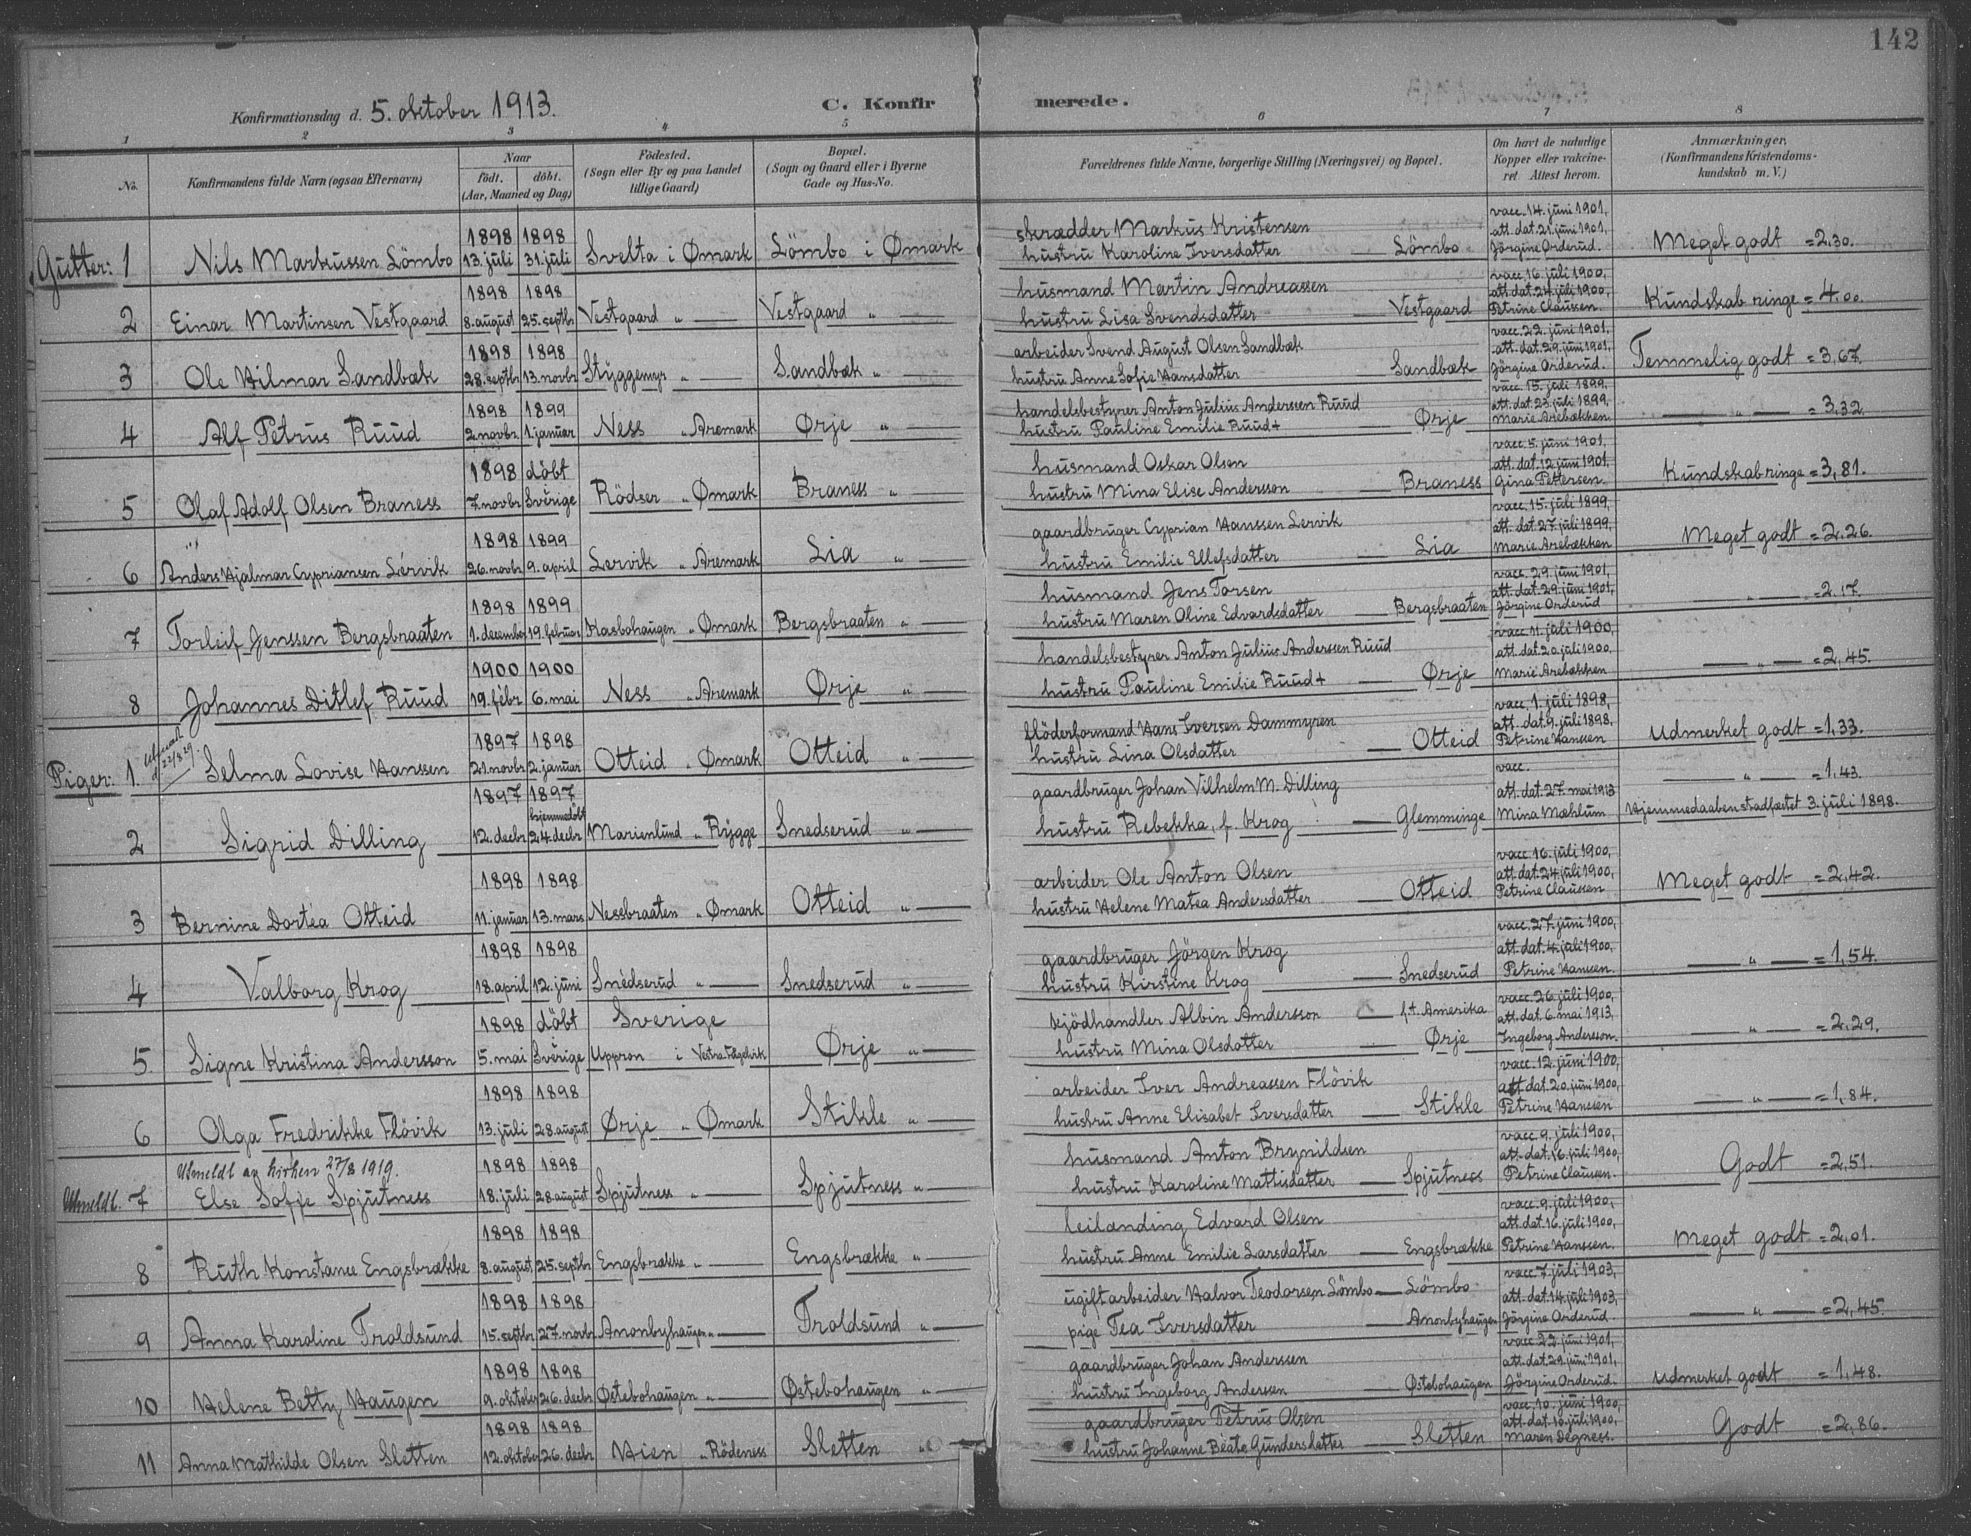 142
Konfirmationsdag d. 5. oktober 1913.
C. Konfirmerede.
1 2 3 4 5 6 7 8
No. Konfirmandens fulde Navn (ogsaa Efternavn) Naar født. døbt. (Aar, Maaned og Dag) Fødested. (Sogn eller By og paa Landet tillige Gaard) Bopæl. (Sogn og Gaard eller i Byerne Gade og Hus-No. Forældrenes fulde Navne, borgerlige Stilling (Næringsvei) og Bopæl. Om havt de naturlige Kopper eller vakcineret. Attest herom. Anmærkninger. (Konfirmandens Kristendomskundskab m. V.)
Gutter: 1 Nils Markussen Lömbo 1898 13. juli 1898 31. juli Svelta i Ømark Lömbo i Ømark skrædder Markus Kristensen hustru Karoline Iversdatter — Lömbo vacc. 14. juni 1901, att. dat. 21. juni 1901, Jörgine Orderud. Meget godt = 2,30.
2 Einar Martinsen Vestgaard 1898 8. august 1898 25. septbr Vestgaard " — Vestgaard " — husmand Martin Andreassen hustru Lisa Svendsdatter — Vestgaard vacc. 16. juli 1900, att. dat. 24. juli 1900, Petrine Claussen. Kundskab ringe = 4,00.
3 Ole Hilmar Sandbæk 1898 28. septbr 1898 13. novbr Styggemyr " — Sandbæk " — arbeider Svend August Olsen Sandbæk hustru Anne Sofie Hansdatter Sandbæk vacc. 22. juni 1901, att. dat. 29. juni 1901, Jörgine Orderud. Temmelig godt = 3,67.
4 Alf Petrus Ruud 1898 2. novbr. 1899 1. januar Ness " Aremark Ørje " — handelsbestyrer Anton Julius Anderssen Ruud hustru Pauline Emilie Ruud + — Ørje vacc. 15. juli 1899, att. dat. 23. juli 1899, Marie Arebækken — " — = 3,32.
5 Olaf Adolf Olsen Braness 1898 7. novbr döbt Sverige Rödser " Ømark Braness " — husmand Oskar Olsen hustru Mina Elise Andersson — Braness vacc. 5. juni 1901, att. dat. 12 juni 1901, Gina Pettersen. Kundskab ringe = 3,81.
6 Anders Hjalmar Cypriansen Lervik 1898 26. novbr 1899 9. april Lervik " Aremark Lia " — gaardbruger Cyprian Hanssen Lervik hustru Emilie Ellefsdatter — Lia vacc. 15. juli 1899, att. dat. 27. juli 1899, Marie Arebækken Meget godt = 2,26.
7 Torleif Jenssen Bergsbraaten 1898 1. december 1899 19. februar Kasbohaugen " Ømark Bergsbraaten " — husmand Jens Torsen hustru Maren Oline Edvardsdatter — Bergsbraaten vacc. 29. juni 1901, att. dat. 29. juni 1901, Jörgine Orderud — " — = 2,17.
8 Johannes Ditlef Ruud 1900 19. febr 1900 6. mai Ness " Aremark Ørje " — handelsbestyrer Anton Julius Anderssen Ruud hustru Pauline Emilie Ruud + — Ørje vacc. 11. juli 1900, att. dat. 20. juli 1900, Marie Arebækken — " — = 2,45.
Piger: 1. 22/8 29. Selma Lovise Hanssen 1897 21. novbr 1898 2. januar Otteid " Ømark Otteid " — flöderformand Hans Iversen Dammyren hustru Lina Olsdatter — Otteid vacc. 1. juli 1898, att. dat. 9. juli 1898, Petrine Hanssen Udmerket godt = 1,33.
2 Sigrid Dilling 1897 12. decbr 1897 hjemmedöbt 24. decbr Marienlund " Rygge Snedserud " — gaardbruger Johan Vilhelm M. Dilling hustru Rebekka, f. Krog — Glemminge vacc. att. dat. 27. mai 1913 Mina Mæhlum — " — = 1,43. Hjemmedaaben stadfæstet 3. juli 1898.
3 Bernine Dortea Otteid 1898 11. januar 1898 13. mars Nessebraaten " Ømark Otteid " — arbeider Ole Anton Olsen hustru Helene Matea Andersdatter — Otteid vacc. 16. juli 1900, att. dat. 24. juli 1900, Petrine Claussen Meget godt = 2,42.
4 Valborg Krog 1898 18. april 1898 12. juni Snedserud " — Snedserud " — gaardbruger Jörgen Krog hustru Kirstine Krog — Snedserud vacc. 27. juni 1900, att. dat. 4. juli 1900, Petrine Hanssen. — " — = 1,54.
5 Signe Kristina Andersson 1898 5. mai döbt Sverige Sverige Uppron i Ørje " — kjödhandler Albin Andersson — f.t. Amerika hustru Mina Olsdotter — Ørje vacc. 26. juli 1900, att. dat. 6. mai 1913, Ingeborg Andersson. — " — = 2,29.
6 Olga Fredrikke Flövik 1898 13. juli 1898 28. august Ørje " Ømark Stikle " — arbeider Iver Andreassen Flövik hustru Anne Elisabet Iversdatter — Stikle vacc. 12. juni 1900, att. dat. 20. juni 1900, Petrine Hanssen — " — = 1,84.
Utmeldt av kirken 27/8 1919.
Utmeldt. 7 Else Sofie Spjutness 1898 18. juli 1898 28. august Spjutness " — Spjutness " — husmand Anton Brynildsen hustru Karoline Mattisdatter — Spjutness vacc. 9. juli 1900, att. dat. 16. juli 1900, Petrine Claussen. Godt = 2,51.
8 Ruth Konstance Engsbrække 1898 8. august 1898 25. septbr Engsbrække " — Engsbrække " — leilanding Edvard Olsen hustru Anne Emilie Larsdatter — Engsbrække vacc. 9. juli 1900, att. dat. 16. juli 1900, Petrine Hanssen. Meget godt = 2,01.
9 Anna Karoline Troldsund 1898 15. septbr 1898 27. novbr Anonbyhaugen " — Troldsund " — ugift arbeider Halvor Teodorsen Lömbo — Lömbo pige Tea Iversdatter — Anonbyhaugen vacc. 7. juli 1903, att. dat. 14. juli 1903, Jörgine Orderud. — " — = 2,45.
10 Helene Betty Haugen 1898 9. oktober 1898 26. decbr Østebohaugen " — Østebohaugen " — gaardbruger Johan Anderssen hustru Ingeborg Anderssen — Østebohaugen vacc. 22. juni 1901, att. dat. 29. juni 1901, Jörgine Orderud. Udmerket godt = 1,48.
11 Anna Mathilde Olsen Sletten 1898 12. oktober 1898 26. decbr Hien " Rödeness Sletten " — gaardbruger Petrus Olsen hustru Johanne Beate Gundersdatter — Sletten vacc. 10. juni 1900, att. dat. 10. juli 1900, Maren Degness. Godt = 2,86.